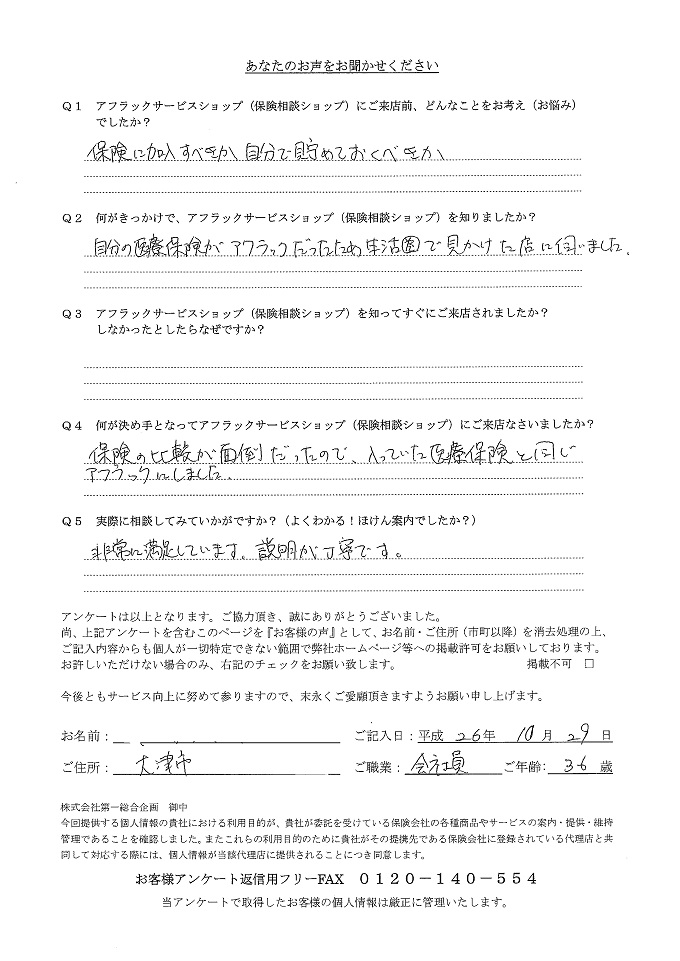 あなたのお声をお聞かせください
Q1 アフラックサービスショップ（保険相談ショップ）にご来店前、どんなことをお考え（お悩み）
でしたか？
保険に加入すべきか 自分で貯めておくべきか
Q2 何がきっかけで、アフラックサービスショップ（保険相談ショップ）を知りましたか？
自分の医療保険がアフラックだったため生活圏で見かけた店に伺いました。
Q3 アフラックサービスショップ（保険相談ショップ）を知ってすぐにご来店されましたか？
しなかったとしたらなぜですか？
Q4 何が決め手となってアフラックサービスショップ（保険相談ショップ）にご来店なさいましたか？
保険の比較が面倒だったので、入っていた医療保険と同じ
アフラックにしました。
Q5 実際に相談してみていかがですか？（よくわかる！ほけん案内でしたか？）
非常に満足しています。説明が丁寧です。
アンケートは以上となります。ご協力頂き、誠にありがとうございました。
尚、上記アンケートを含むこのページを『お客様の声』として、お名前・ご住所（市町以降）を消去処理の上、
ご記入内容からも個人が一切特定できない範囲で弊社ホームページ等への掲載許可をお願いしております。
お許しいただけない場合のみ、右記のチェックをお願い致します。 掲載不可 □
今後ともサービス向上に努めて参りますので、末永くご愛顧頂きますようお願い申し上げます。
お名前： ご記入日：平成 26年 10月 29日
ご住所： 大津市 ご職業： 会社員 ご年齢： 36 歳
株式会社第一総合企画 御中
今回提供する個人情報の貴社における利用目的が、貴社が委託を受けている保険会社の各種商品やサービスの案内・提供・維持
管理であることを確認しました。またこれらの利用目的のために貴社がその提携先である保険会社に登録されている代理店と共
同して対応する際には、個人情報が当該代理店に提供されることにつき同意します。
お客様アンケート返信用フリーFAX 0120－140－554
当アンケートで取得したお客様の個人情報は厳正に管理いたします。